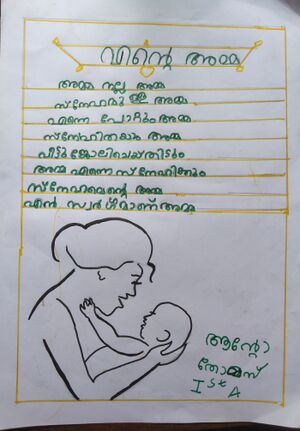 എന്റെ അമ്മ
അമ്മ നല്ല അമ്മ
സ്നേഹമുള്ള അമ്മ
എന്നെ പോറ്റും അമ്മ
സ്നേഹിതയും അമ്മ
വീട്ടുജോലിചെയ്തിടും
അമ്മ എന്നെ സ്നേഹിക്കും
സ്നേഹമെന്റെ അമ്മ
എൻ സ്വർഗ്ഗമാണ് അമ്മ
ആന്റോ
തോമസ്
I st A